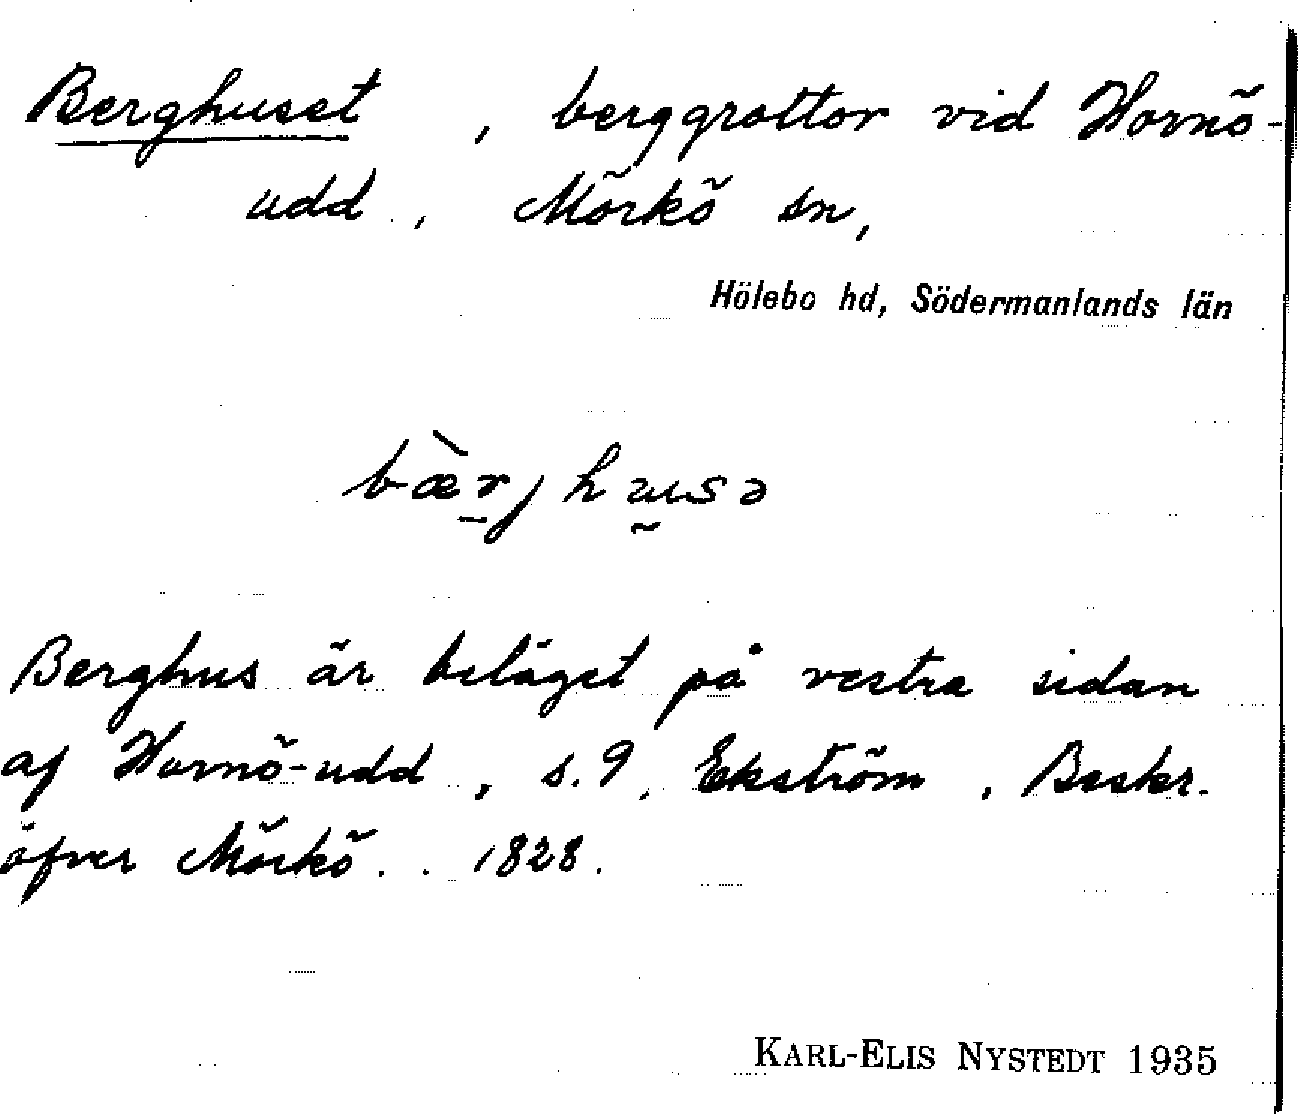 Berghuset, berggrottor vid Hornö-
udd, Mörkö sn,
Hölebo hd, Södermanlands län
bæ̀rjhusə
Berghus är beläget på vestra sidan
af Hornö-udd, s. 9, Ekström, Beskr.
öfver Mörkö.. 1828.
KARL-ELIS NYSTEDT 1935